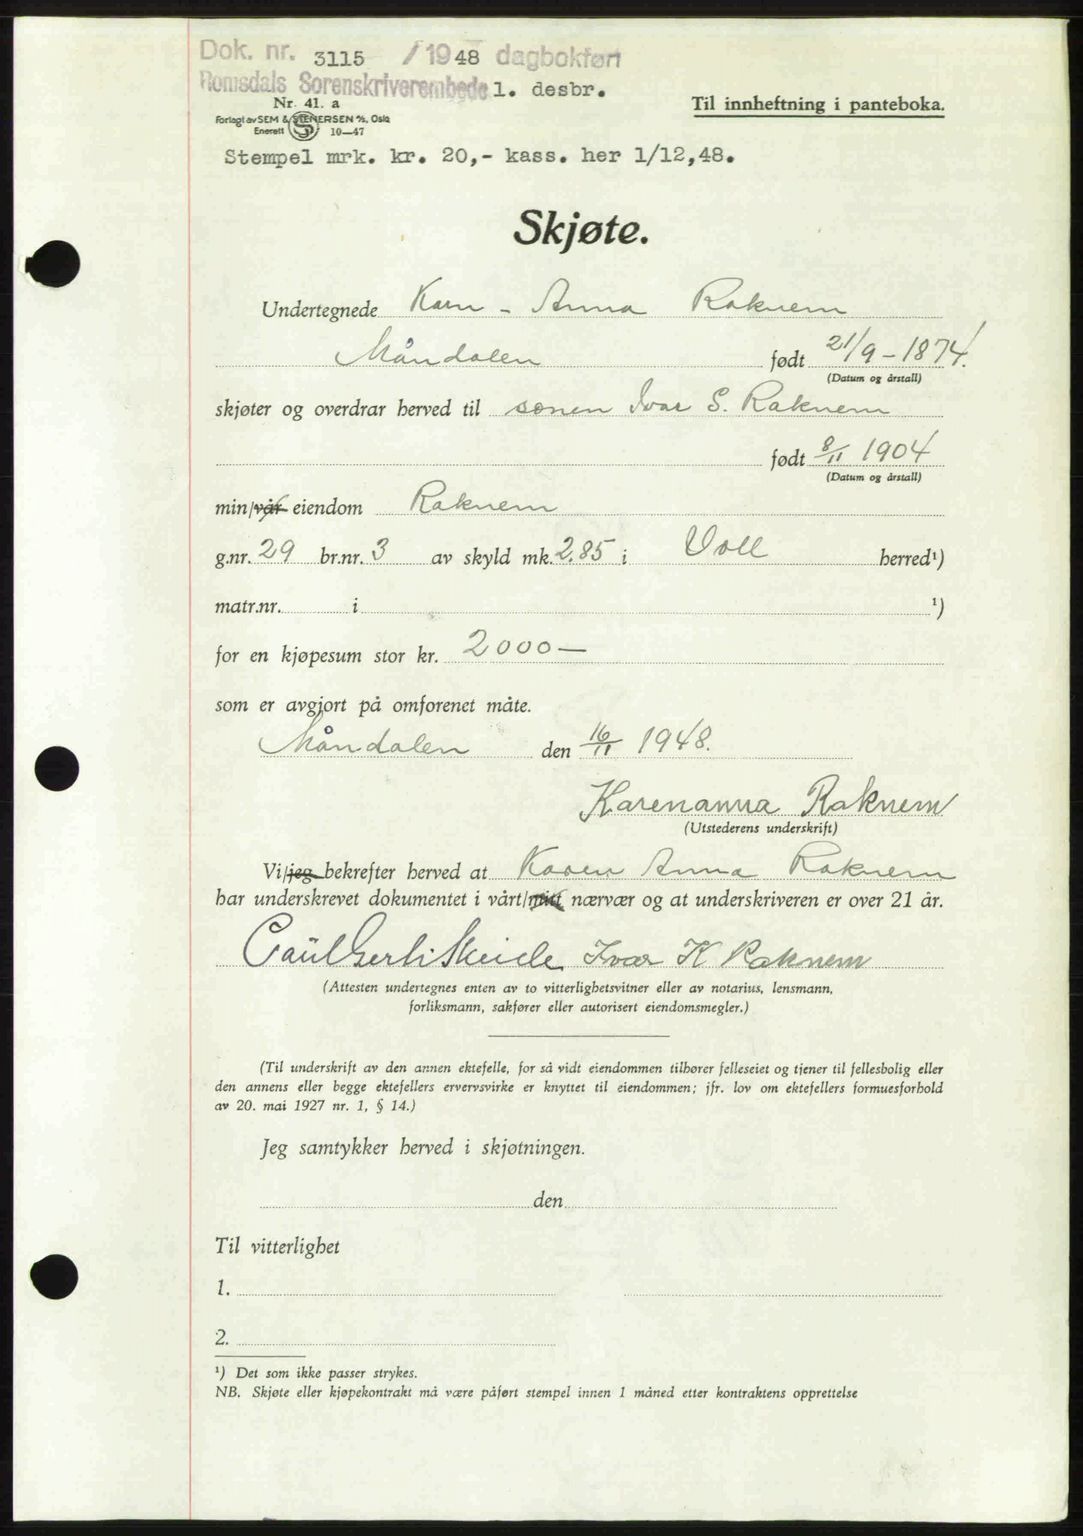 Dok. nr. 3115 / 1948 dagbokført
Romsdals Sorenskriverembede 1. desbr.
Nr. 41. a
Til innheftning i panteboka.
Forlagt av SEM & STENERSEN A/S, Oslo
Enerett 10—47
Stempel mrk. kr. 20,- kass. her 1/12,48.
Skjøte.
Undertegnede Karn - Anna Raknem
Måndalen født 21/9 - 1874.
(Datum og årstall)
skjøter og overdrar herved til sønen Ivar S. Raknem
født 8/11 1904
(Datum og årstall)
min/vår eiendom Raknem
g.nr. 29 br.nr. 3 av skyld mk. 2.85 i Voll herred¹)
matr.nr. i ¹)
for en kjøpesum stor kr. 2000—
som er avgjort på omforenet måte.
Måndalen den 16/11 1948.
Karenanna Raknem
(Utstederens underskrift)
Vi/jeg bekrefter herved at Karen Anna Raknem
har underskrevet dokumentet i vårt/mitt nærvær og at underskriveren er over 21 år.
Paul Skeide Ivar K Raknem
(Attesten undertegnes enten av to vitterlighetsvitner eller av notarius, lensmann,
forliksmann, sakfører eller autorisert eiendomsmegler.)
(Til underskrift av den annen ektefelle, for så vidt eiendommen tilhører felleseiet og tjener til fellesbolig eller
den annens eller begge ektefellers ervervsvirke er knyttet til eiendommen; jfr. lov om ektefellers formuesforhold
av 20. mai 1927 nr. 1, § 14.)
Jeg samtykker herved i skjøtningen.
den
Til vitterlighet
1.
2.
¹) Det som ikke passer strykes.
NB. Skjøte eller kjøpekontrakt må være påført stempel innen 1 måned etter kontraktens opprettelse